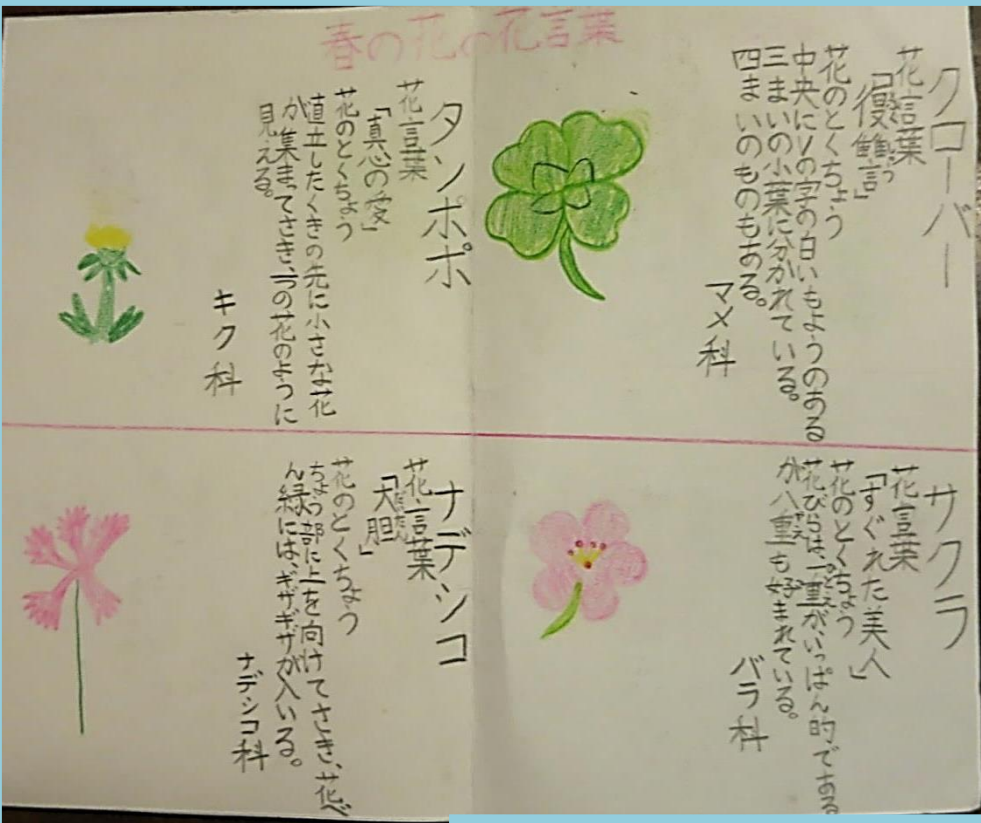 春の花の花言葉
クローバー
花言葉
「復讐」
花のとくちょう
中央にVの字の白いもようのある
三まいの小葉に分かれている。
四まいのものもある。
マメ科
タンポポ
花言葉
「真心の愛」
花のとくちょう
直立したくきの先に小さな花
が集まってさき、一つの花のように
見える。
キク科
サクラ
花言葉
「すぐれた美人」
花のとくちょう
花びらは、一重が、いっぱん的である
が八重も好まれている。
バラ科
ナデシコ
花言葉
「大胆」
花のとくちょう
ちょう部に上を向けてさき、花べ
ん緑には、ギザギザが入いる。
ナデシコ科